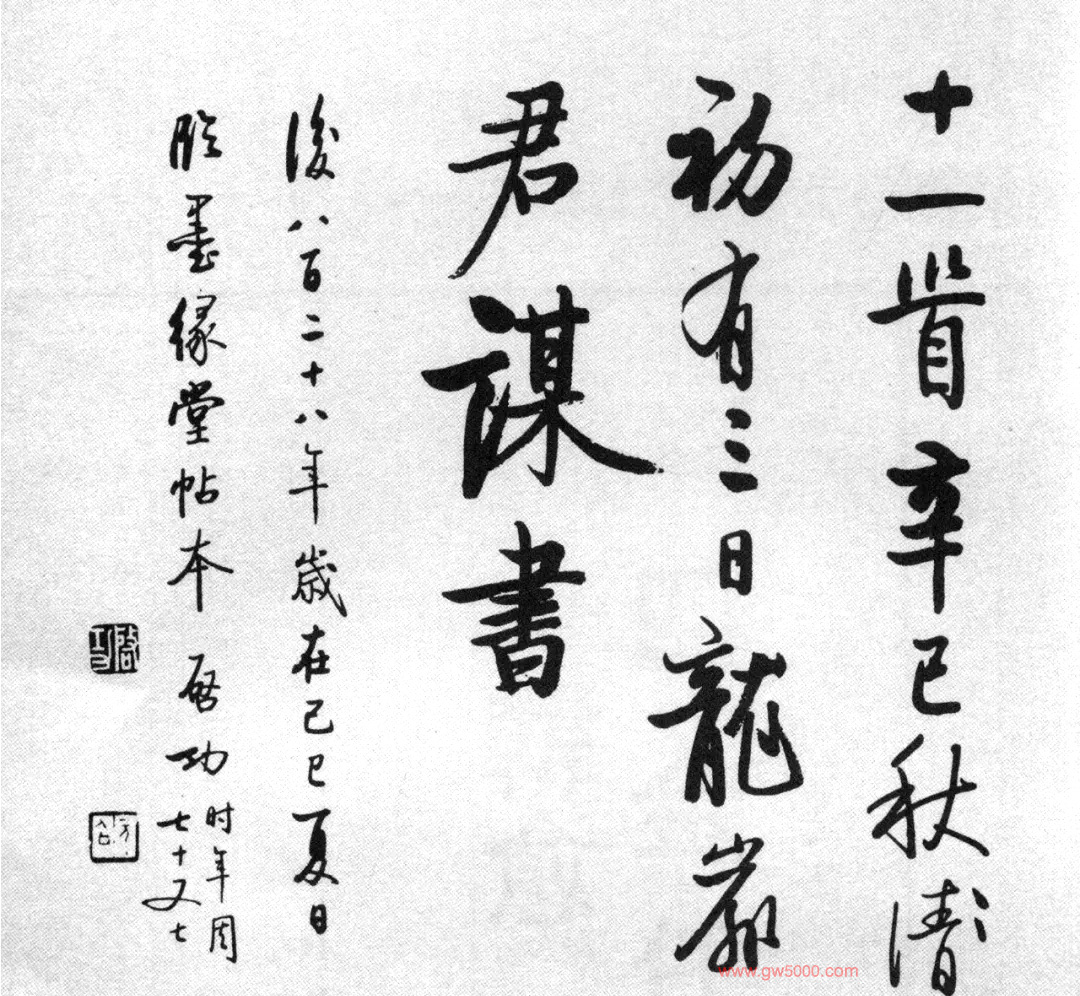 十一首辛巳秋清
初有三日龍巖
君謀書
後八百二十八年歲在己巳夏日
臨墨緣堂帖本 啓功
时年周
七十又七
啓功
www.gw5000.com